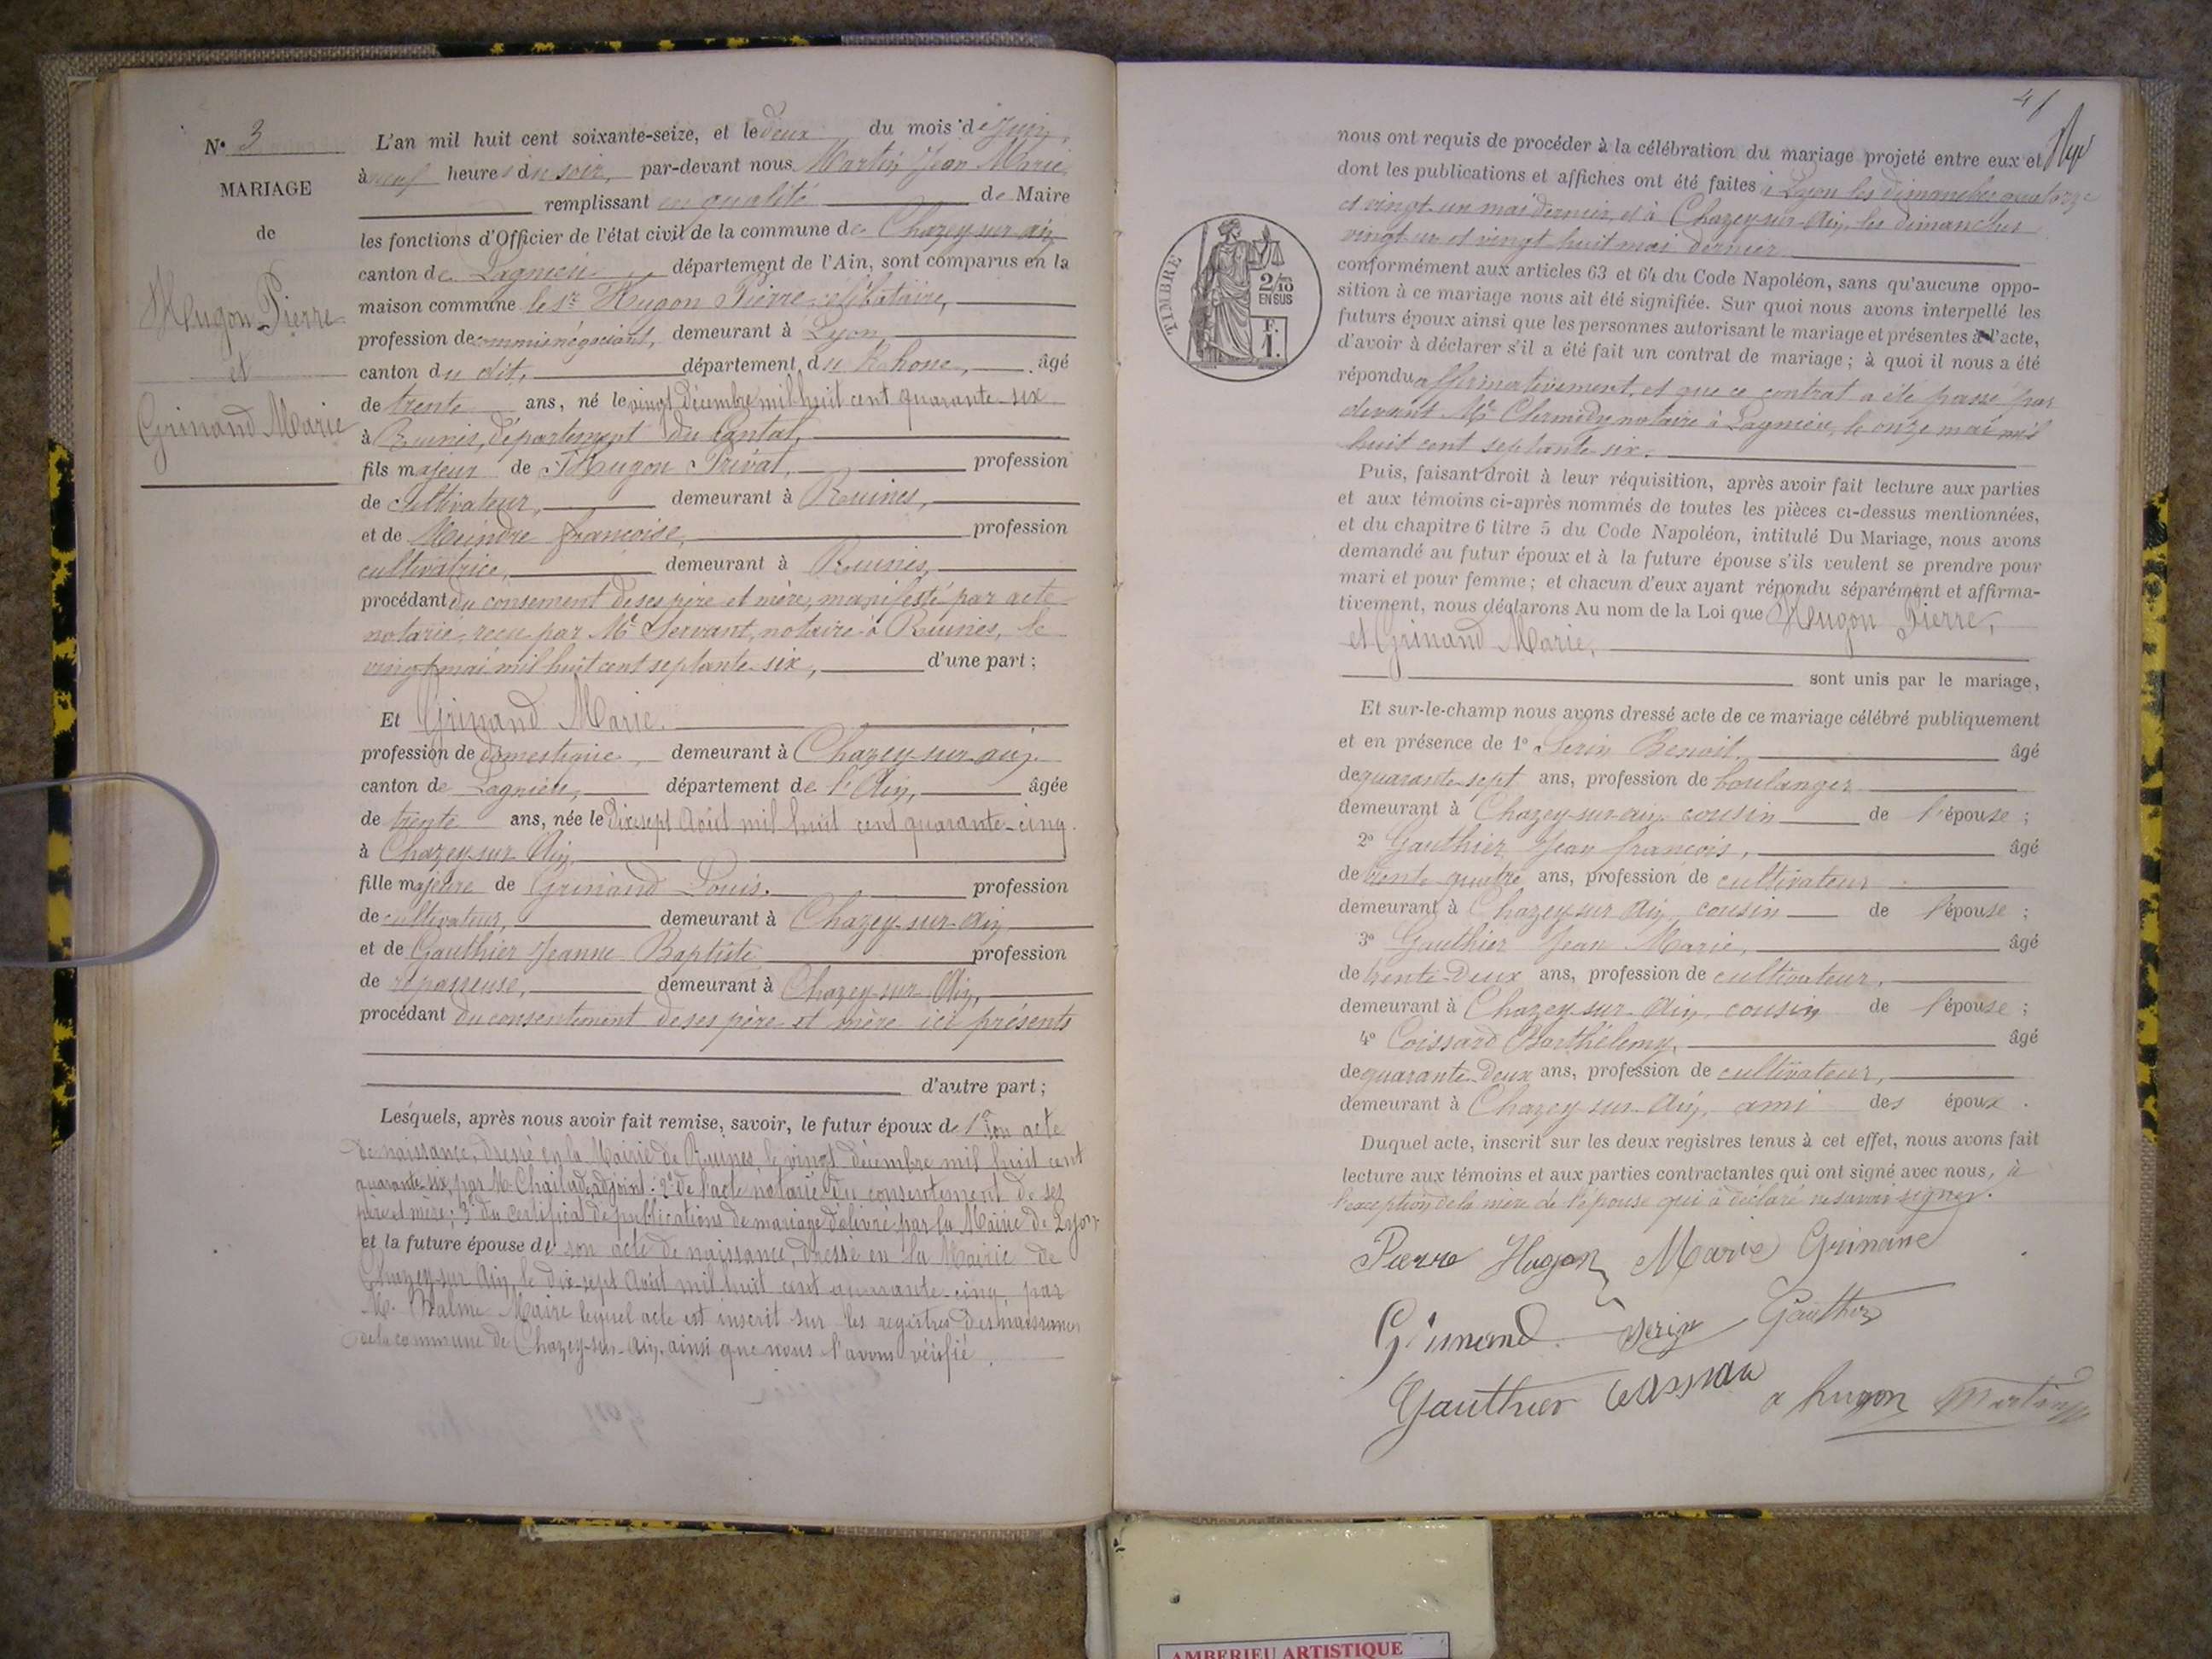 N° 3
MARIAGE
de
Hugon Pierre
et
Grinand Marie
L'an mil huit cent soixante-seize, et le deux du mois de Juin,
à neuf heures du soir, par-devant nous Martin Jean Marie
remplissant en qualité de Maire
les fonctions d'Officier de l'état civil de la commune de Chazey sur ain
canton de Lagnieu département de l'Ain, sont comparus en la
maison commune le sr Hugon Pierre célibataire,
profession de commis négociant, demeurant à Lyon,
canton du dit, département du Rhone, âgé
de trente ans, né le vingt Décembre mil huit cent quarante-six
à Ruines, département du Cantal,
fils majeur de Hugon Privat, profession
de cultivateur, demeurant à Ruines,
et de Meindre françoise, profession
cultivatrice, demeurant à Ruines,
procédant du consement de ses père et mère, manifesté par acte
notarié, reçu par Me Servant, notaire à Ruines, le
vingt mai mil huit cent septante-six, d'une part;
Et Grinand Marie.
profession de domestique, demeurant à Chazey-sur-ain
canton de Lagnieu, département de l'Ain, âgée
de trente ans, née le Dix sept Août mil huit cent quarante-cinq.
à Chazey-sur-Ain,
fille majeure de Grinand Louis. profession
de cultivateur, demeurant à Chazey-sur-Ain
et de Gauthier Jeanne Baptiste profession
de repasseuse, demeurant à Chazey-sur-Ain,
procédant du consentement de ses père et mère ici présents
d'autre part;
Lesquels, après nous avoir fait remise, savoir, le futur époux de 1° son acte
de naissance, dressé en la Mairie de Ruines, le vingt décembre mil huit cent
quarante six, par M. adjoint. 2° de l'acte notarié du consentement de ses
père et mère; 3° du certificat de publications de mariage délivré par la Mairie de Lyon
et la future épouse de son acte de naissance, dressé en la Mairie de
Chazey-sur-Ain, le dix-sept Août mil huit cent quarante-cinq, par
M. Balme Maire lequel acte est inscrit sur les registres des naissances
de la commune de Chazey-sur-Ain, ainsi que nous l'avons vérifié.
41
nous ont requis de procéder à la célébration du mariage projeté entre eux et
dont les publications et affiches ont été faites à Lyon les dimanches quatorze
et vingt-un mai dernier, et à Chazey-sur-Ain, les dimanches
vingt-un et vingt-huit mai dernier
conformément aux articles 63 et 64 du Code Napoléon, sans qu'aucune oppo-
sition à ce mariage nous ait été signifiée. Sur quoi nous avons interpellé les
futurs époux ainsi que les personnes autorisant le mariage et présentes à l'acte,
d'avoir à déclarer s'il a été fait un contrat de mariage; à quoi il nous a été
répondu affirmativement, et que ce contrat a été passé par
devant Me notaire à Lagnieu, le onze mai mil
huit cent septante-six.
TIMBRE
2/10
EN SUS
F.
1.
Puis, faisant droit à leur réquisition, après avoir fait lecture aux parties
et aux témoins ci-après nommés de toutes les pièces ci-dessus mentionnées,
et du chapitre 6 titre 5 du Code Napoléon, intitulé Du Mariage, nous avons
demandé au futur époux et à la future épouse s'ils veulent se prendre pour
mari et pour femme; et chacun d'eux ayant répondu séparément et affirma-
tivement, nous déclarons Au nom de la Loi que Hugon Pierre,
et Grinand Marie,
sont unis par le mariage,
Et sur-le-champ nous avons dressé acte de ce mariage célébré publiquement
et en présence de 1° Serin Benoit, âgé
de quarante-sept ans, profession de boulanger
demeurant à Chazey-sur-ain, cousin de l'épouse;
2° Gauthier Jean françois, âgé
de trente-quatre ans, profession de cultivateur
demeurant à Chazey sur Ain, cousin de l'épouse;
3° Gauthier Jean Marie, âgé
de trente-Deux ans, profession de cultivateur,
demeurant à Chazey sur Ain, cousin de l'épouse;
4° Coissard Barthélemy, âgé
de quarante-Deux ans, profession de cultivateur,
demeurant à Chazey sur Ain, ami des époux.
Duquel acte, inscrit sur les deux registres tenus à cet effet, nous avons fait
lecture aux témoins et aux parties contractantes qui ont signé avec nous, à
l'exception de la mère de l'épouse qui a déclaré ne savoir signer.
Pierre Hugon Marie Grinand
Grinand Serin Gauthier
Gauthier a hugon Martin
AMBERIEU ARTISTIQUE